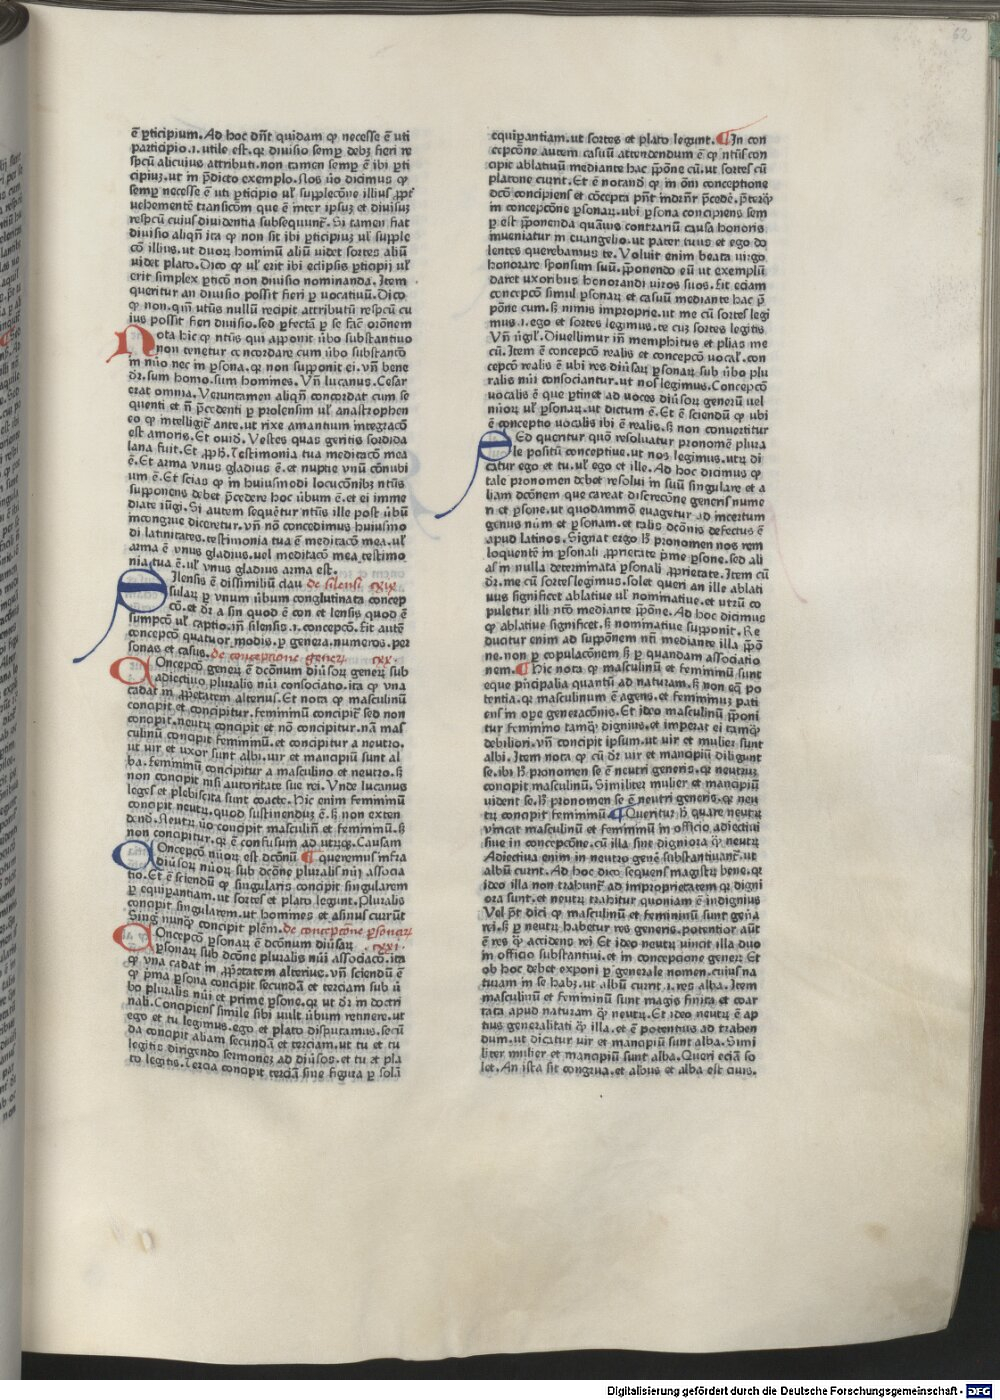 62
ē p̱ticipium. Ad hoc dn̄t quidam ꝙ necesse ē uti
participio .i. utile est. qꝛ diuisio semꝑ debꝫ fieri re
spcū alicuius attributi. non tamen semꝑ ē ibi ꝑti
cipiuꝫ. ut in p̄dicto exemplo. Nos ūo dicimus ꝙ
semꝑ necesse ē uti ꝑticipio ul̄ supplecōne illius ꝓpt̄
vehementē transicōm que ē inter ipsuꝫ et diuisuꝫ
respcū cuius diuidentia subsequunt̄. Si tamen fiat
diuisio aliqn̄ ita ꝙ non sit ibi ꝑticipiuꝫ ul̄ supple
cō illius. ut duoꝝ hominū aliū videt sortes aliū
videt plato. Dico ꝙ ul̄ erit ibi eclipsis ꝑticipij ul̄
erit simplex ꝑticō non diuisio nominanda. Item
queritur an diuisio possit fieri ꝑ uocatiuū. Dico
ꝙ non. qm̄ utūs nullū recipit attributū respcū cu
ius possit fieri diuisio. sed ꝑfectā ꝑ se facē orōnem
Nota hic ꝙ nt̄us qui apponit ūbo substantiuo
non tenetur concordare cum ūbo substantiō
in nūo nec in ꝑsona. qꝛ non supponit ei. vn̄ bene
dr̄. sum homo. sum hommes. Vn̄ lucanus. Cesar
erat omnia. Veruntamen aliqn̄ concordat cum se
quenti et n̄ p̄cedenti ꝑ prolensim ul̄ anastrophen
eo ꝙ intelligit̄ ante. ut rixe amantium integracō
est amoris. Et ouid. Vestes quas geritis sordida
lana fuit. Et ꝓph̄. Testimonia tua meditacō mea
ē. Et arma vnus gladius ē. et nuptie vnū cōnubi
um ē. Et scias ꝙ in huiusmodi locucōnibꝫ nt̄us
supponens debet p̄cedere hoc ūbum ē. et ei imme
diate iūgi. Si autem sequēt̄ur nt̄us ille post ūbū
incongrue diceretur. vn̄ nō concedimus huiusmo
di latinitates. testimonia tua ē meditacō mea. ul̄
arma ē vnus gladius. uel meditacō mea testimo
nia tua ē. ul̄ vnus gladius arma est.
Silensis ē dissimiliū clau de silensi cxix
sulaꝝ ꝑ vnum ūbum conglutinata concep
cō. et dr̄ a sin quod ē con et lensis quod ē
sumpcō ul̄ captio. in̄ silensis .i. concepcō. Fit autē
concepcō quatuor modis. ꝑ genera. numeros. per
sonas et casus. de conceptione geneꝝ cxx.
Concepcō geneꝝ ē dcōnum diūsoꝝ geneꝝ sub
adiectiuo pluralis nūi consociatio. ita ꝙ vna
cadat in ꝓp̄etatem alterius. Et nota ꝙ masculinū
concipit et concipitur. femininū concipit̄ sed non
concipit. neutꝝ concipit et nō concipitur. nā mas
culinū concipit femininū. et concipitur a neutro.
ut uir et uxor sunt albi. uir et mancipiū sunt al
ba. Femininū concipitur a masculino et neutro. ꝭ
non concipit nisi autoritate sue rei. Vnde lucanus
leges et plebiscita sunt coacte. Hic enim femininū
concipit neutꝝ. quod sustinenduꝫ ē. ꝭ non exten
dend̄. Neutꝝ ūo concipit masculin̄ et femininū. ꝭ
non concipitur. qꝛ ē confusum ad utꝝqꝫ. Causam
Concepcō nūoꝝ est dcōnū ¶ queremus infra
diūsoꝝ nūoꝝ sub dcōne pluralis nūi associa
tio. Et ē sciendū ꝙ singularis concipit singularem
ꝑ equiꝑantiam. ut sortes et plato legunt. Pluralis
concipit singularem. ut hommes et asinus currūt
Sing̉ nunꝙ̄ concipit plēm. de concepcōne ꝑsonaꝝ
Concepcō ꝑsonaꝝ ē dcōnum diūsaꝝ . cxxi.
ꝑsonaꝝ sub dcōne pluralis nūi associacō. ita
ꝙ vna cadat in ꝓp̄etatem alterius. vn̄ sciendū ē
ꝙ p̄ma ꝑsona concipit secundā et terciam sub ū
bo pluralis nūi et prime ꝑsone. qꝛ ut dr̄ in doctri
nali. Concipiens simile sibi uult ūbum retinere. ut
ego et tu legimus. ego et plato disputamus. secū
da concipit aliam secundā et terciam. ut tu et tu
legitis dirigendo sermoneꝫ ad diūsos. et tu et pla
to legitis. Tercia concipit terciā sine figura ꝑ solā
equiꝑantiam. ut sortes et plato legunt. ¶ In con
cepcōne autem casuū attendendum ē ꝙ nt̄us con
cipit ablatiuū mediante hac p̄pōne cū. ut sortes cū
platone curr̄nt. Et ē notand̄ ꝙ in om̄i conceptione
dcō concipiens et cōcepta pn̄t indr̄n̄r p̄cedē. p̄terꝙ̄
in concepcōne ꝑsonaꝝ. ubi ꝑsona concipiens sem
ꝑ est p̄ponenda quāuis contrariū causa honoris
inueniatur in euangelio. ut pater tuus et ego do
lentes querebamus te. Voluit enim beata uirgo
honorare sponsum suū. p̄ponendo eū ut exemplū
daret uxoribus honorandi uiros suos. Fit eciam
concepcō simul ꝑsonaꝝ et casuū mediante hac p̄
pōne cum. ꝭ nimis improprie. ut me cū sortes legi
mus .i. ego et sortes legimus. te cuꝫ sortes legitis
Vn̄ ūgil̄. Diuellimur in̄ memphitus et plias me
cū. Item ē concepcō realis et concepcō uocal̄. con
cepcō realis ē ubi res diūsaꝝ ꝑsonaꝝ sub ūbo plu
ralis nūi consociantur. ut nos legimus. Concepcō
uocalis ē que ꝑtinet ad uoces diūsoꝝ generū uel
nūoꝝ ul̄ ꝑsonaꝝ. ut dictum ē. Et ē sciendū ꝙ ubi
ē conceptio uocalis ibi ē realis. ꝭ non conuertitur
Sed queritur quō resoluatur pronomē plura
le positū conceptiue. ut nos legimus. utꝝ di
catur ego et tu. ul̄ ego et ille. Ad hoc dicimus ꝙ
tale pronomen debet resolui in suū singulare et a
liam dcōnem que careat discrecōne generis nume
ri et ꝑsone. ut quodammō euagetur ad incertum
genus nūm et ꝑsonam. et talis dcōnis defectus ē
apud latinos. Signat ergo ħ pronomen nos rem
loquentē in ꝑsonali ꝓprietate p̄me ꝑsone. sed ali
as in nulla determinata ꝑsonali ꝓprietate. Item cū
dr̄. me cū sortes legimus. solet queri an ille ablati
uus significet ablatiue ul̄ nominatiue. et utrū co
puletur illi nt̄o mediante p̄pōne. Ad hoc dicimus
ꝙ ablatiue significet. ꝭ nominatiue supponit. Re
ducitur enim ad supponem nt̄i mediante illa p̄pō
ne. non ꝑ copulacōnem ꝭ ꝑ quandam associatio
nem. ¶ Hic nota ꝙ masculinū et femininū sunt
eque pn̄cipalia quantū ad naturam. ꝭ non eqꝫ po
tentia. qꝛ masculinum ē agens. et femininuꝫ pati
ens in opē generacōnis. Et ideo masculinū p̄poni
tur feminino tamꝙ̄ dignius. et imperat ei tamꝙ̄
debiliori. vn̄ concipit ipsum. ut uir et mulier sunt
albi. Item nota ꝙ cū dr̄ uir et mancipiū diligunt
se. ibi ħ pronomen se ē neutri generis. qꝛ neutruꝫ
concipit masculinū. Similiter mulier et mancipiū
vident se. ħ pronomen se ē neutri generis. qꝛ neu
tꝝ concipit femininū ¶ Queritur ħ quare neutꝝ
vincat masculinū et femininū in officio adiectiui
siue in concepcōne. cū illa sint digniora ꝙ̄ neutꝝ
Adiectiua enim in neutro genē substantiuant̄. ut
albū currit. Ad hoc dico sequens magistꝝ bene. qꝛ
ideo illa non trahunt̄ ad improprietatem qꝛ digni
ora sunt. et neutꝝ trahitur quoniam ē indignius
Vel pt̄ dici ꝙ masculinū et femininū sunt gen̄a
rei. ꝭ ꝑ neutꝝ habetur res generis. potentior aūt
ē res ꝙ̄ accidens rei Et ideo neutꝝ vincit illa duo
in officio substantiui. et in concepcione geneꝝ Et
ob hoc debet exponi ꝑ generale nomen. cuius na
turam in se habꝫ. ut albū currit .i. res alba. Item
masculinū et femininū sunt magis finita et coar
tata apud naturam ꝙ̄ neutꝝ. Et ideo neutꝝ ē ap
tius generalitati ꝙ̄ illa. et ē potentius ad trahen
dum. ut dicatur uir et mancipiū sunt alba. Simi
liter mulier et mancipiū sunt alba. Queri eciā so
let. An ista sit congrua. et albus et alba est ciuis.
Digitalisierung gefördert durch die Deutsche Forschungsgemeinschaft - DFG